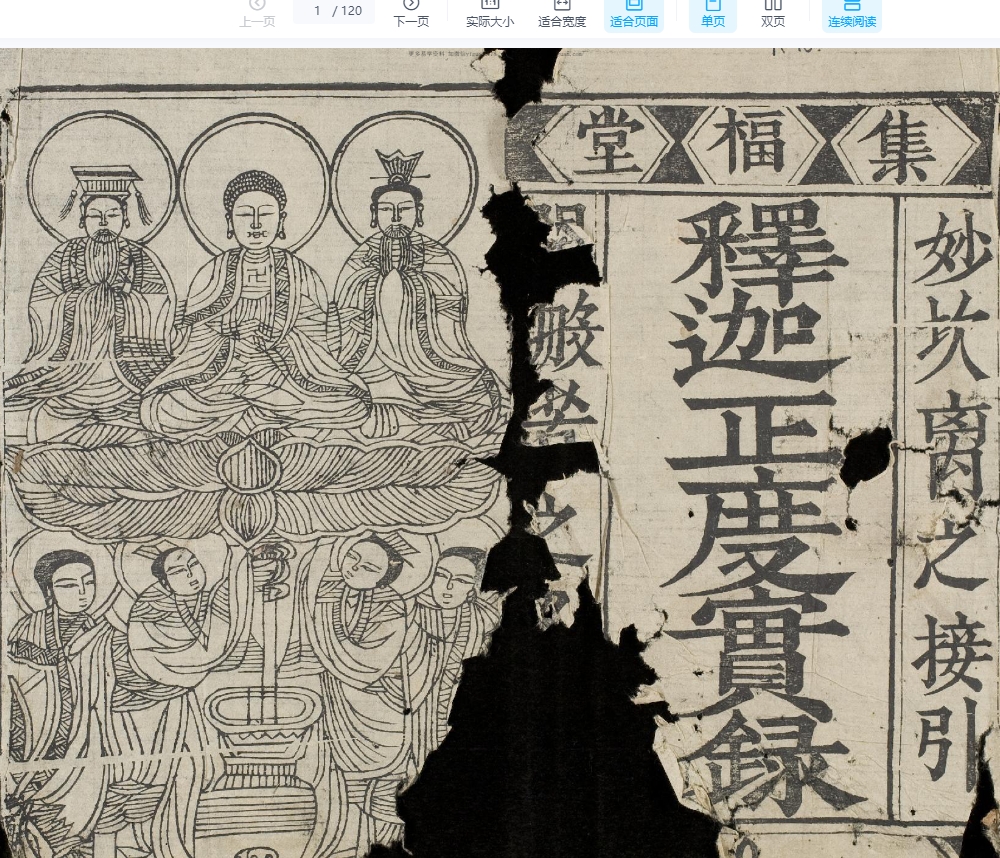 上一页 1 / 120 下一页 实际大小 适合宽度 适合页面 单页 双页 连续阅读
集福堂
妙坎离之接引
釋迦正度實録
般若之